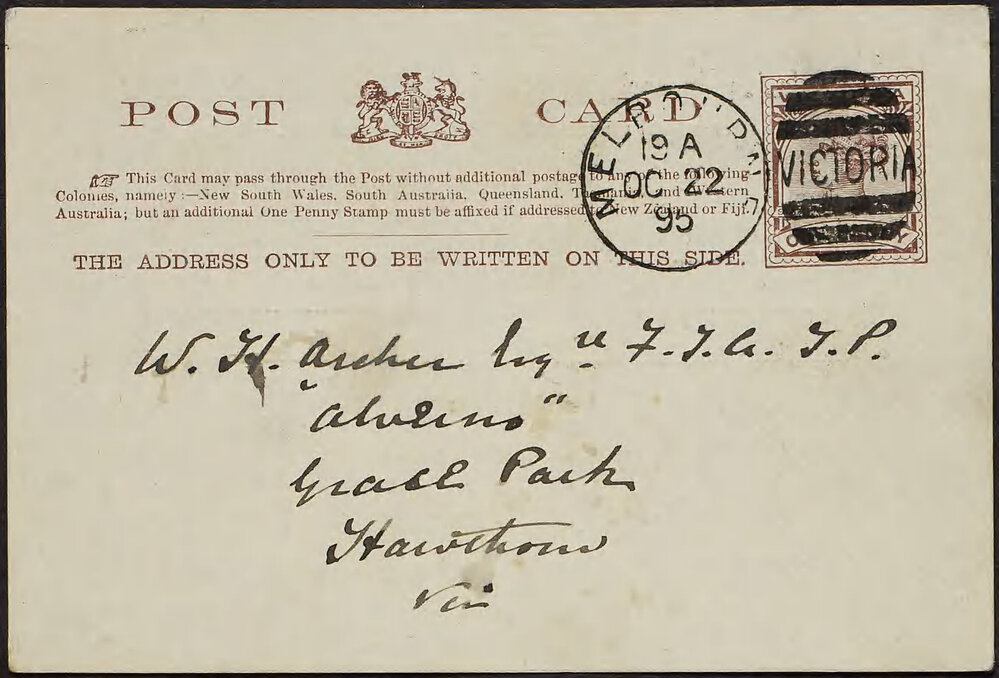 POST CARD
VICTORIA
MELBOURNE
19 A
OC 22
95
VICTORIA
☞ This Card may pass through the Post without additional postage to the following
Colonies, namely:—New South Wales, South Australia, Queensland, and Western
Australia; but an additional One Penny Stamp must be affixed if addressed to New Zealand or Fiji.
THE ADDRESS ONLY TO BE WRITTEN ON THIS SIDE.
W. H. Archer Esqre F.I.A. J.P.
"Alverno"
Grace Park
Hawthorn
Vic